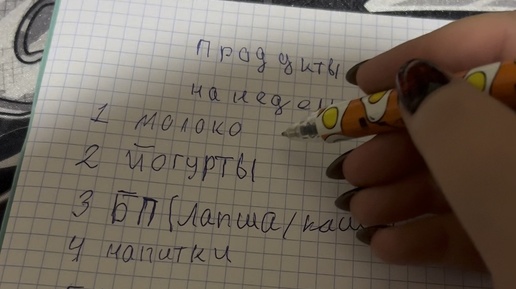 Продукты
на
1 молоко
2 йогурты
3 БП (лапша/
4 напитки